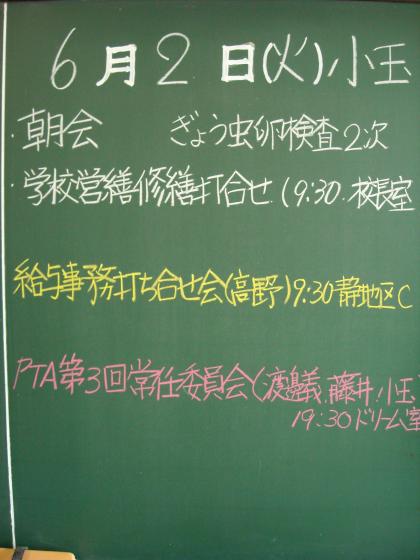 6月2日(火)小玉
・朝会 ぎょう虫卵検査2次
・学校営繕修繕打合せ(9:30.校長室
給与事務打ち合せ会(高野)9:30静地区C
PTA第3回常任委員会(渡邉義.藤井.小玉)
19:30ドリーム室